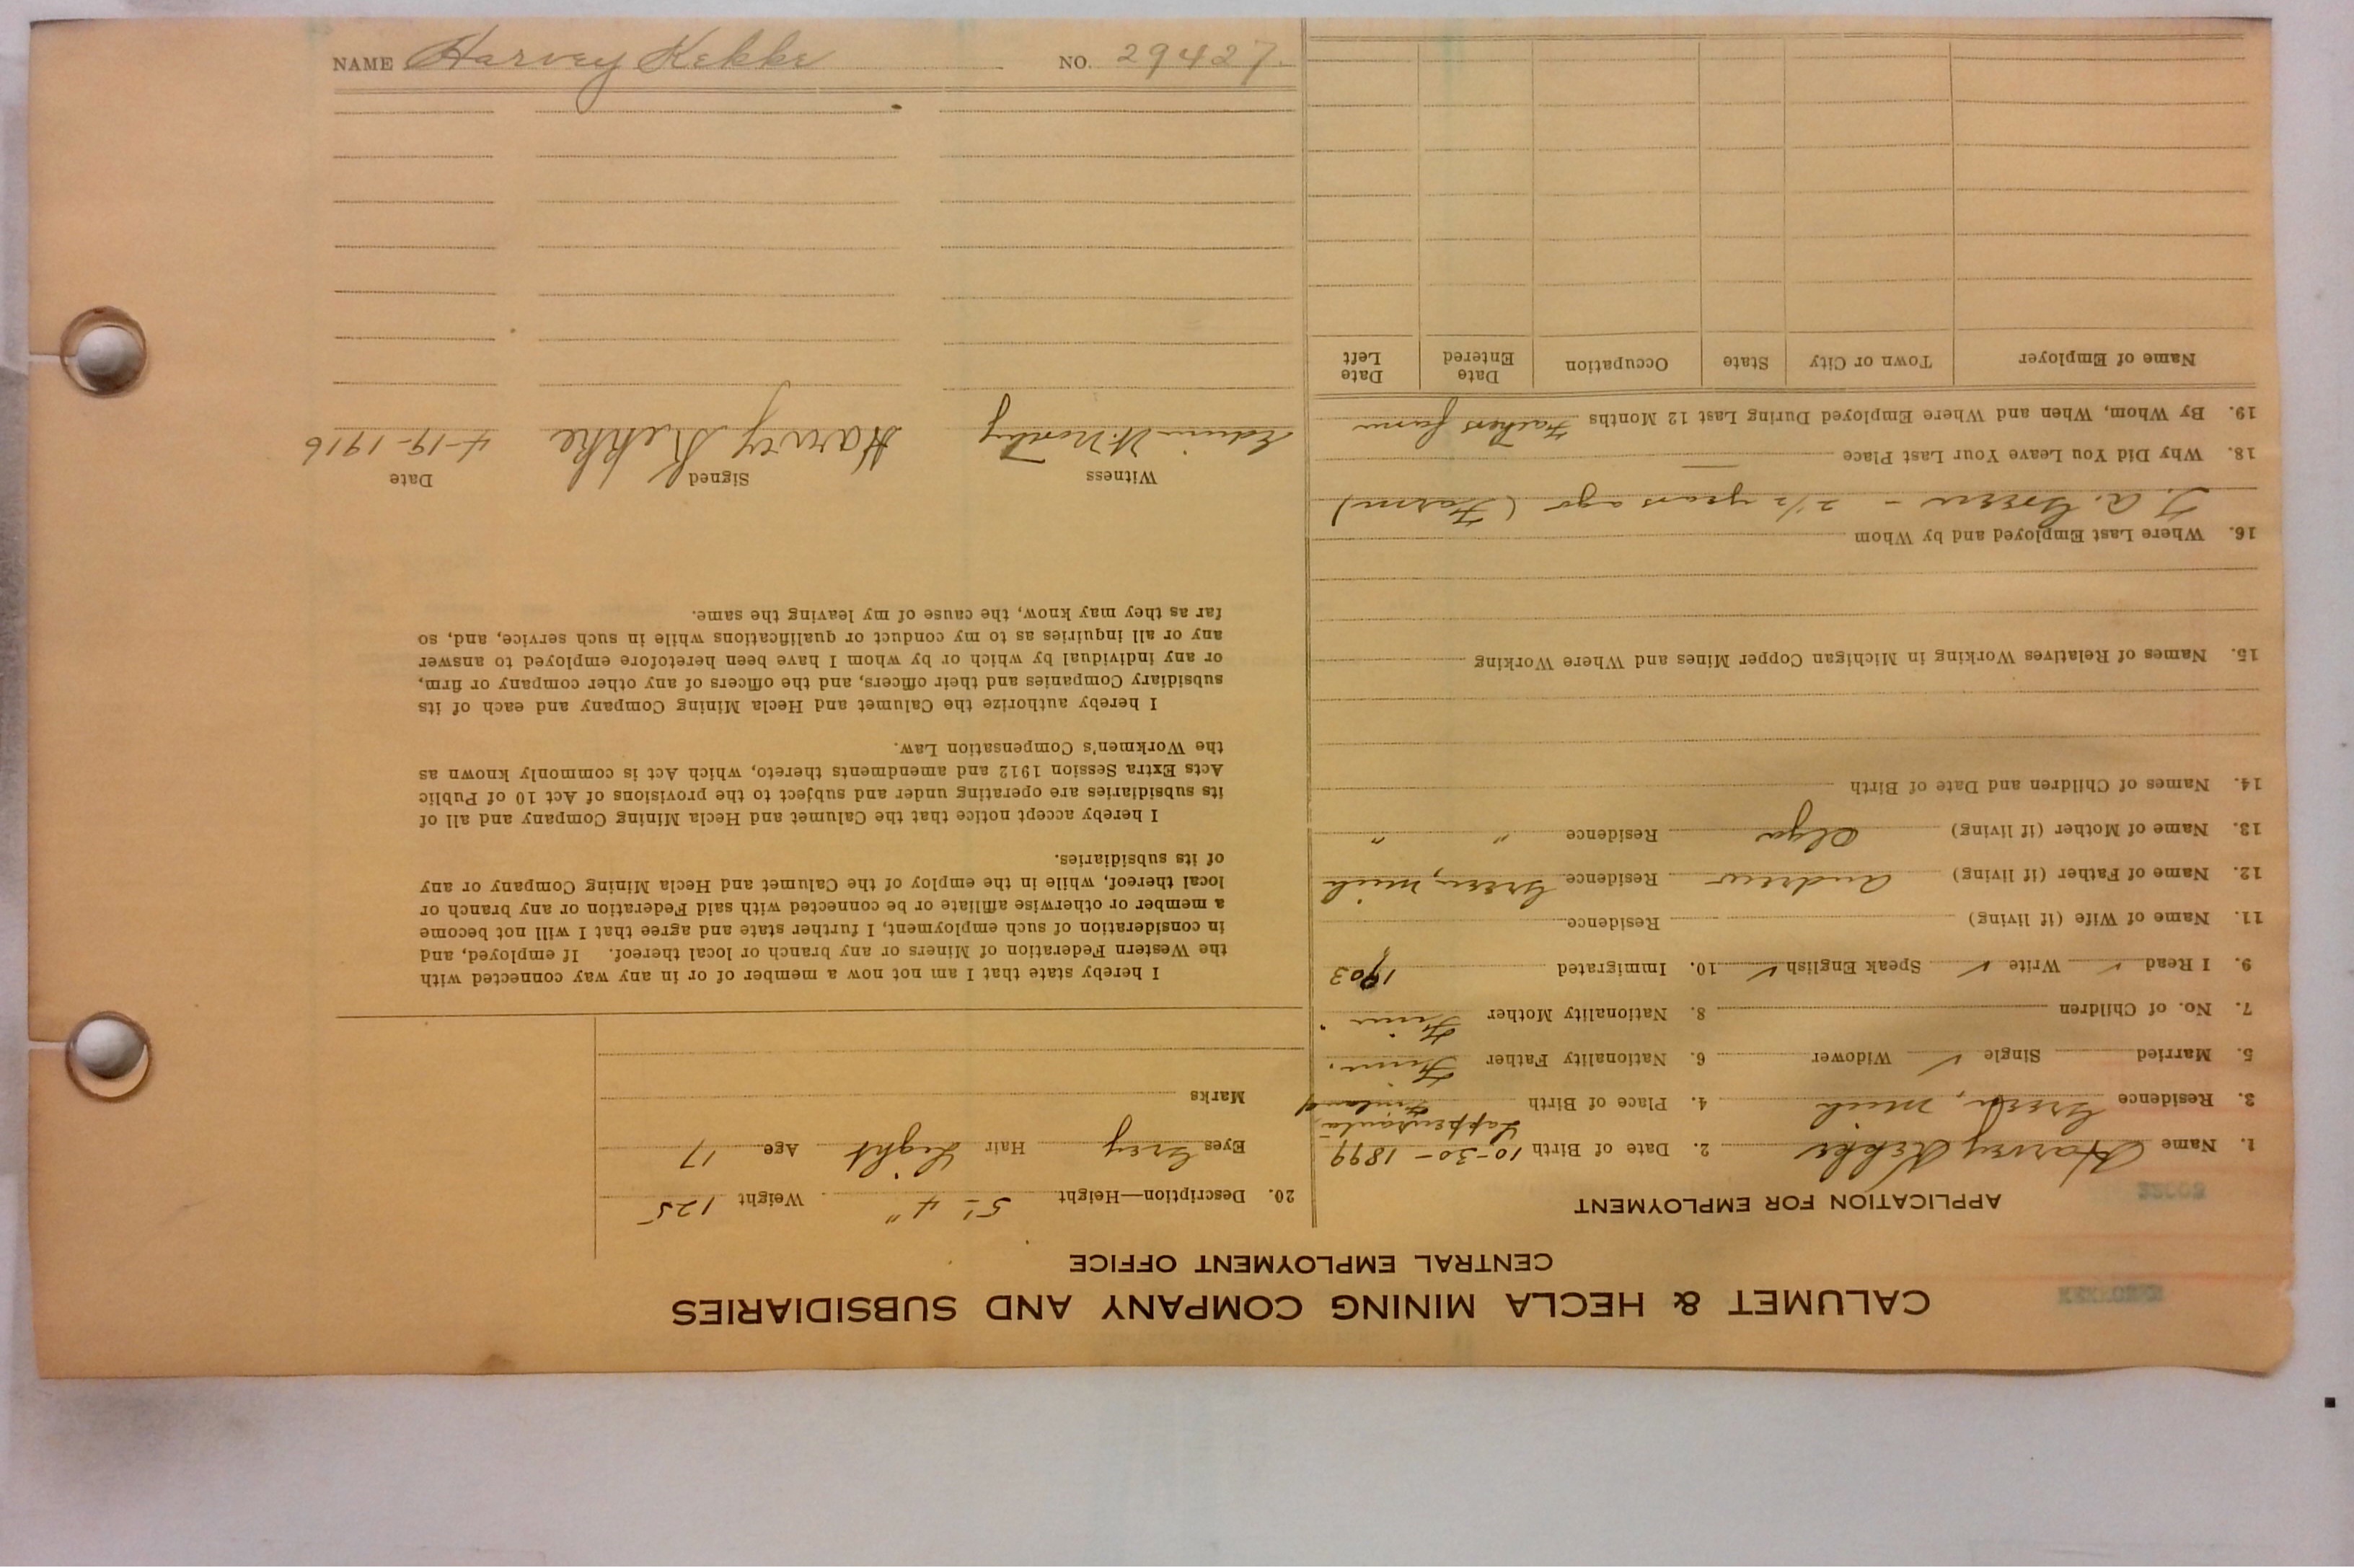 NAME Harvey Kekke NO. 29427.
CALUMET & HECLA MINING COMPANY AND SUBSIDIARIES
CENTRAL EMPLOYMENT OFFICE
APPLICATION FOR EMPLOYMENT
1. Name Harvey Kekke 2. Date of Birth 10-30-1899
3. Residence Green, Mich 4. Place of Birth Lappenranta Finland
5. Married Single ✓ Widower 6. Nationality Father Finn.
7. No. of Children 8. Nationality Mother Finn.
9. I Read ✓ Write ✓ Speak English ✓ 10. Immigrated 1903
11. Name of Wife (if living) Residence
12. Name of Father (if living) Andrew Residence Green, Mich
13. Name of Mother (if living) Olga Residence " "
14. Names of Children and Date of Birth
15. Names of Relatives Working in Michigan Copper Mines and Where Working
16. Where Last Employed and by Whom
J. A. Green - 2 1/2 years ago (Farm)
18. Why Did You Leave Your Last Place —
19. By Whom, When and Where Employed During Last 12 Months Fathers farm
Name of Employer Town or City State Occupation Date Entered Date Left
20. Description—Height 5'-4" Weight 125
Eyes Grey Hair Light Age 17
Marks
I hereby state that I am not now a member of or in any way connected with
the Western Federation of Miners or any branch or local thereof. If employed, and
in consideration of such employment, I further state and agree that I will not become
a member or otherwise affiliate or be connected with said Federation or any branch or
local thereof, while in the employ of the Calumet and Hecla Mining Company or any
of its subsidiaries.
I hereby accept notice that the Calumet and Hecla Mining Company and all of
its subsidiaries are operating under and subject to the provisions of Act 10 of Public
Acts Extra Session 1912 and amendments thereto, which Act is commonly known as
the Workmen's Compensation Law.
I hereby authorize the Calumet and Hecla Mining Company and each of its
subsidiary Companies and their officers, and the officers of any other company or firm,
or any individual by which or by whom I have been heretofore employed to answer
any or all inquiries as to my conduct or qualifications while in such service, and, so
far as they may know, the cause of my leaving the same.
Witness Signed Date
Edwin Harvey Kekke 4-19-1916